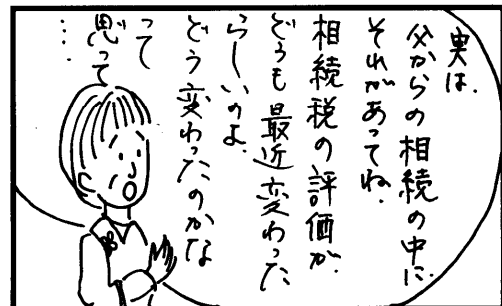 実は、
父からの相続の中に
それがあってね、
相続税の評価が、
どうも最近変わった
らしいのよ、
どう変わったのかな
って
思って
…